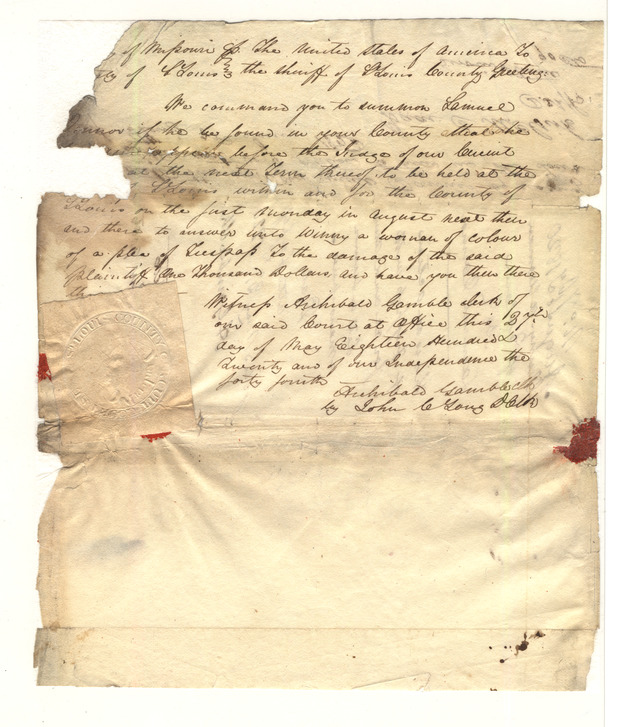 of Missouri Sct. The United States of America To
ty of St Louis the sheriff of St Louis County Greeting
We command you to summon Samuel
Donnor if he be found in your County that he
appear before the Judge of our Circuit
at the next Term thereof to be held at the
St Louis within and for the County of
St Louis on the first Monday in August next then
and there to answer unto Winny a woman of colour
of a plea of Trespass To the damage of the said
plaintiff One Thousand Dollars and have you then there
this
Witness Archibald Gamble clerk of
our said Court at office this 27th
day of May Eighteen Hundred
Twenty and of our Independence the
forty fourth
Archibald Gamble clk
by John C Long D Clk
ST LOUIS COUNTY